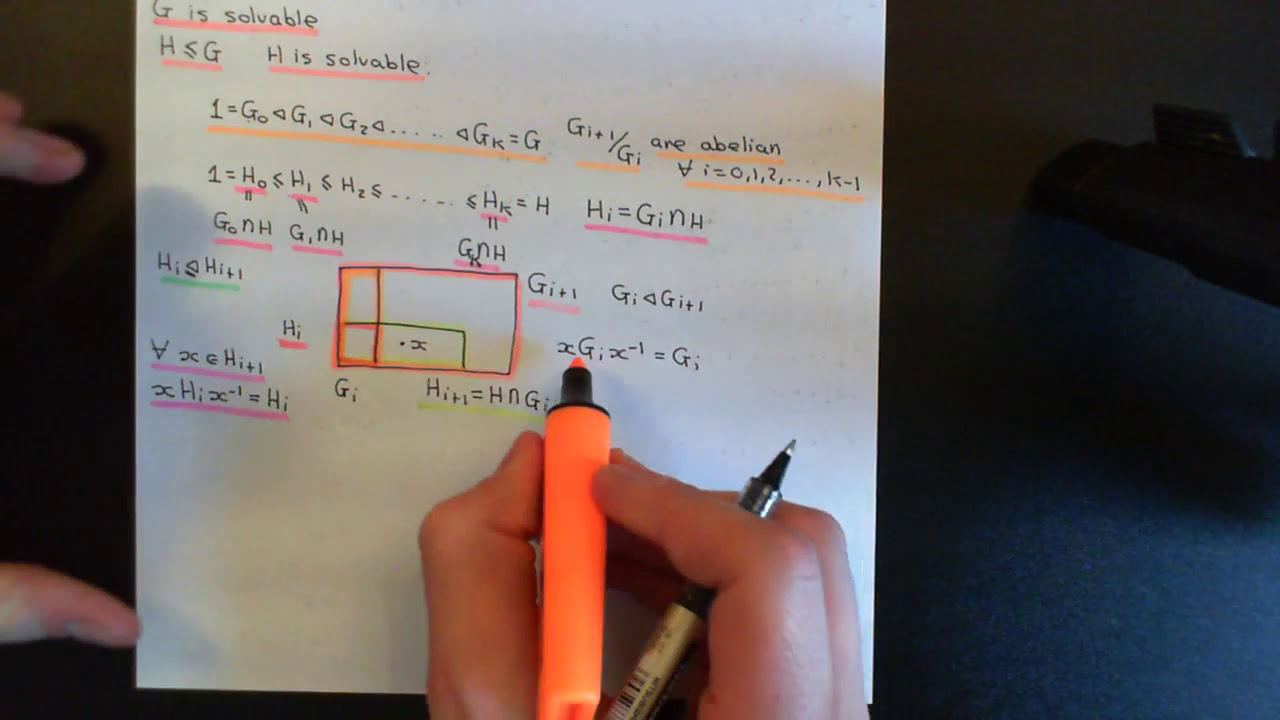 G is solvable
H ≤ G H is solvable.
1 = G₀ ◁ G₁ ◁ G₂ ◁ ...... ◁ Gₖ = G Gᵢ₊₁/Gᵢ are abelian
∀ i = 0,1,2,...,k-1
1 = H₀ ≤ H₁ ≤ H₂ ≤ ...... ≤ Hₖ = H Hᵢ = Gᵢ ∩ H
G₀ ∩ H G₁ ∩ H Gₖ ∩ H
Hᵢ ⊴ Hᵢ₊₁ Gᵢ₊₁ Gᵢ ◁ Gᵢ₊₁
Hᵢ · x
∀ x ∈ Hᵢ₊₁ xGᵢx⁻¹ = Gᵢ
xHᵢx⁻¹ = Hᵢ Gᵢ Hᵢ₊₁ = H ∩ Gᵢ